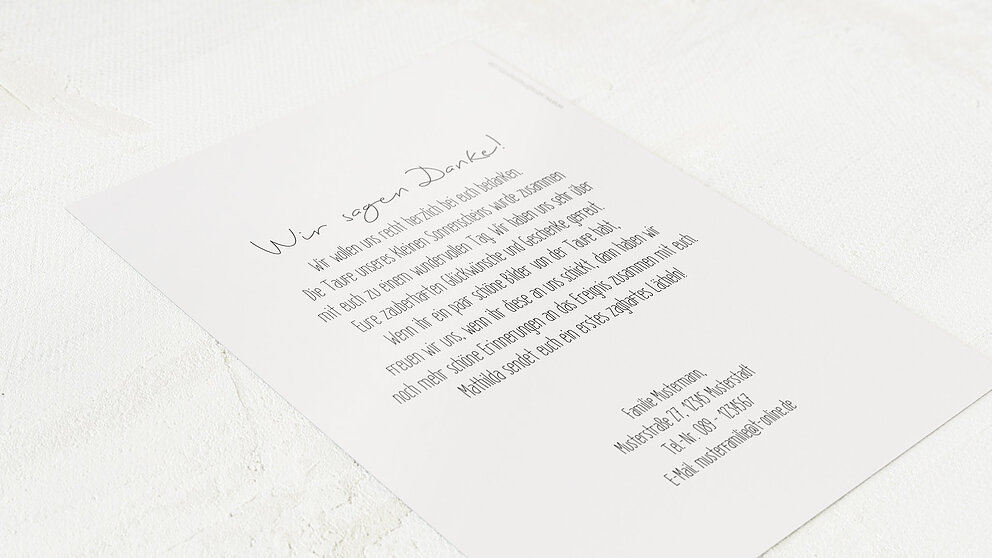 Wir sagen Danke!
Wir wollen uns recht herzlich bei euch bedanken.
Die Taufe unseres kleinen Sonnenscheins wurde zusammen
mit euch zu einem wundervollen Tag. Wir haben uns sehr über
Eure zauberhaften Glückwünsche und Geschenke gefreut.
Wenn ihr ein paar schöne Bilder von der Taufe habt,
freuen wir uns, wenn ihr diese an uns schickt, dann haben wir
noch mehr schöne Erinnerungen an das Ereignis zusammen mit euch.
Mathilda sendet euch ein erstes zaghaftes Lächeln!
Familie Mustermann,
Musterstraße 27, 12345 Musterstadt
Tel.-Nr. 089 - 1234567
E-Mail: musterfamilie@t-online.de